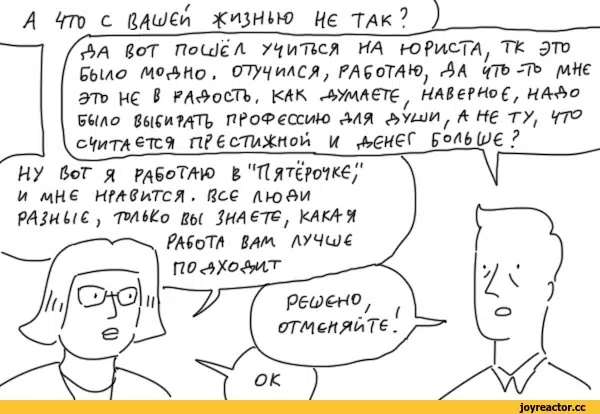 А ЧТО С ВАШЕЙ ЖИЗНЬЮ НЕ ТАК?
ДА ВОТ ПОШЁЛ УЧИТЬСЯ НА ЮРИСТА, ТК ЭТО
БЫЛО МОДНО. ОТУЧИЛСЯ, РАБОТАЮ, ДА ЧТО-ТО МНЕ
ЭТО НЕ В РАДОСТЬ. КАК ДУМАЕТЕ, НАВЕРНОЕ, НАДО
БЫЛО ВЫБИРАТЬ ПРОФЕССИЮ ДЛЯ ДУШИ, А НЕ ТУ, ЧТО
СЧИТАЕТСЯ ПРЕСТИЖНОЙ И ДЕНЕГ БОЛЬШЕ?
НУ ВОТ Я РАБОТАЮ В "ПЯТЁРОЧКЕ,"
И МНЕ НРАВИТСЯ. ВСЕ ЛЮДИ
РАЗНЫЕ, ТОЛЬКО ВЫ ЗНАЕТЕ, КАКАЯ
РАБОТА ВАМ ЛУЧШЕ
ПОДХОДИТ
РЕШЕНО,
ОТМЕНЯЙТЕ!
ОК
joyreactor.cc